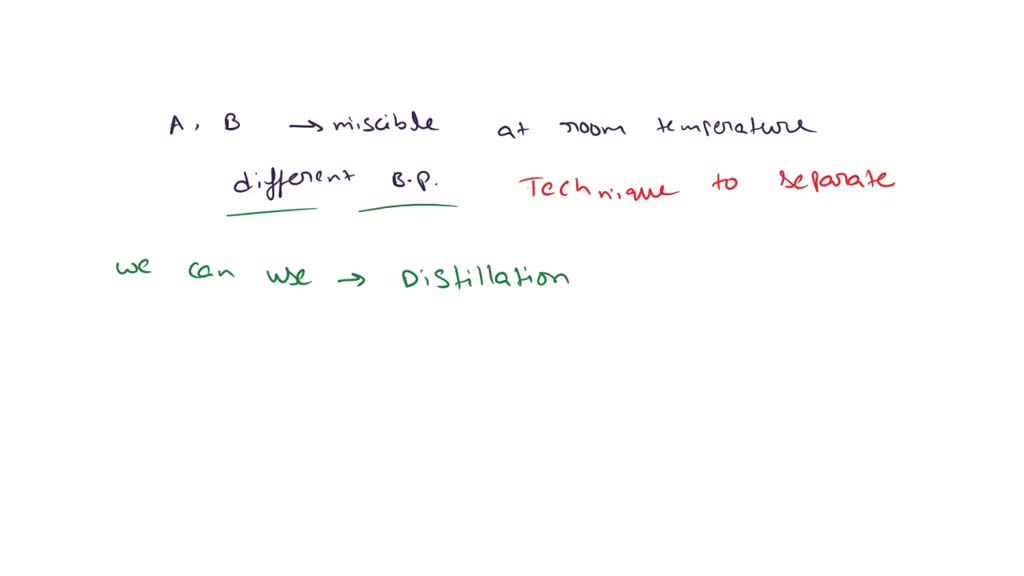 A, B → miscible at room temperature
different B.P. Technique to separate
we can use → Distillation